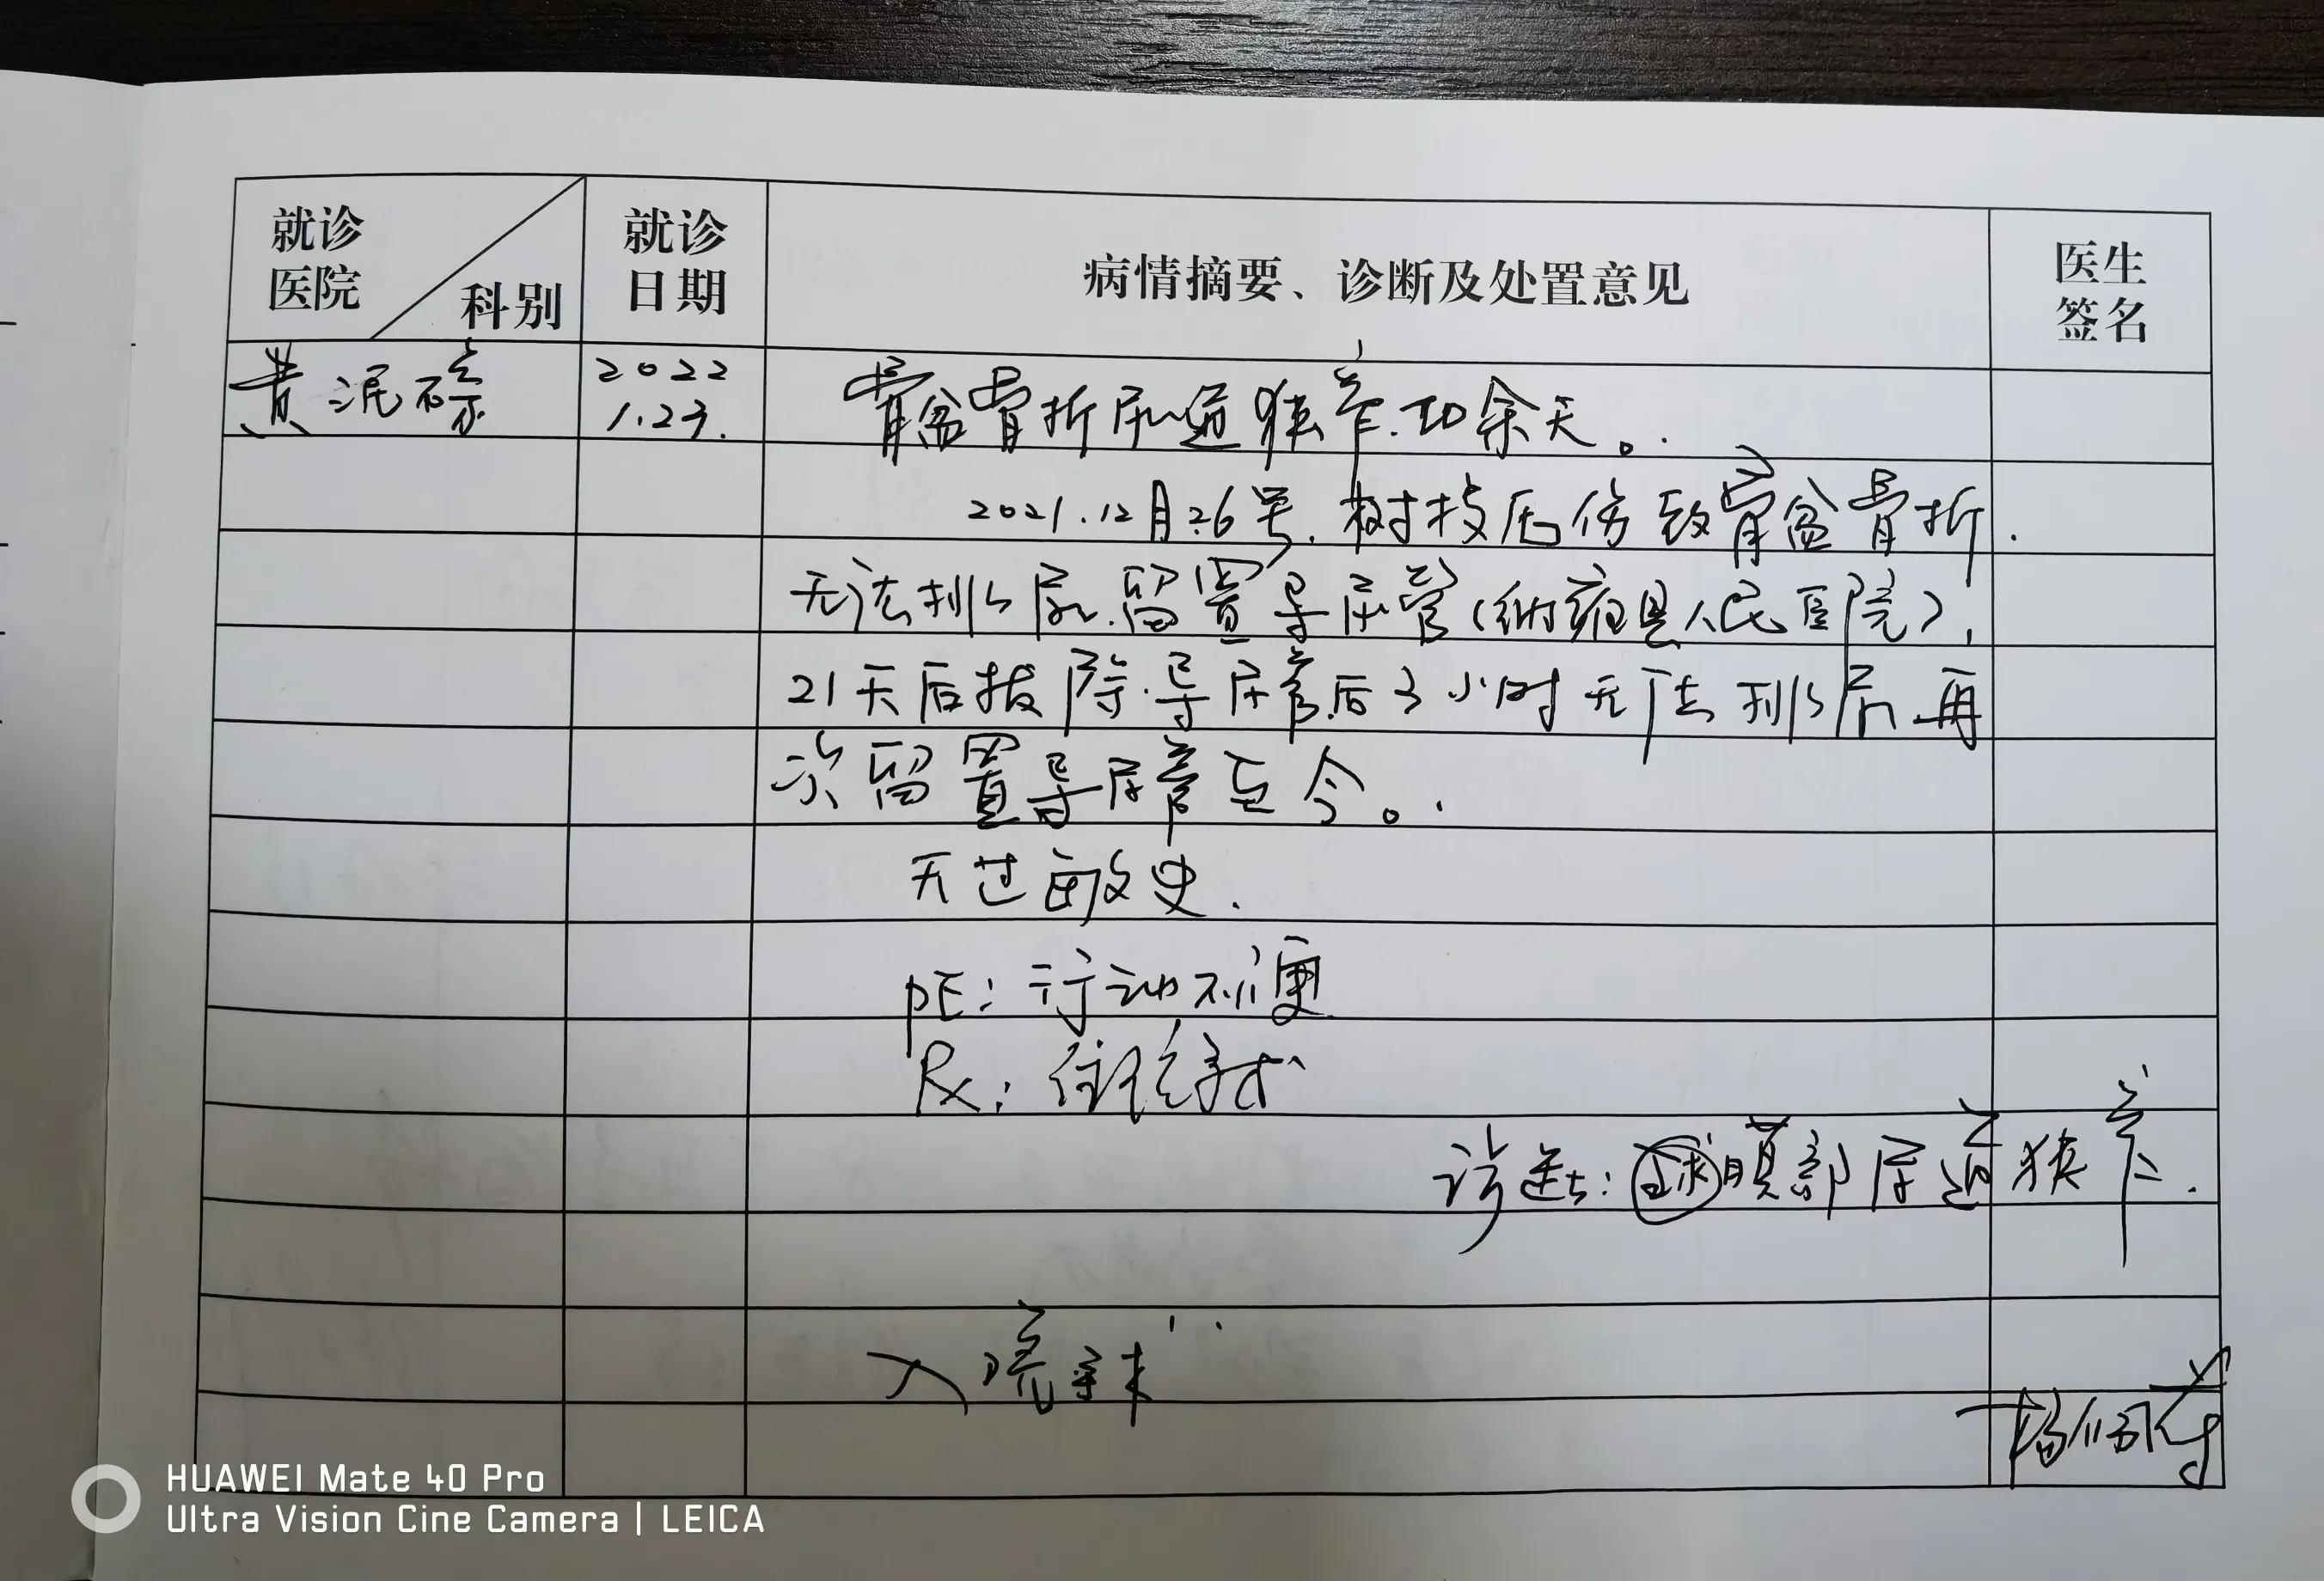 就诊医院 科别
就诊日期
病情摘要、诊断及处置意见
医生签名
黄泥磅
2022
1.23.
骨盆骨折尿道狭窄.20余天。
2021.12月26号.树枝压伤致骨盆骨折.
无法排尿.留置导尿管(纳雍县人民医院),
21天后拔除导尿管后3小时无法排尿.再
次留置导尿管至今。
无过敏史.
PE:行动不便
Rx:住院手术
诊断:球膜部尿道狭窄.
入院手术
HUAWEI Mate 40 Pro
Ultra Vision Cine Camera | LEICA